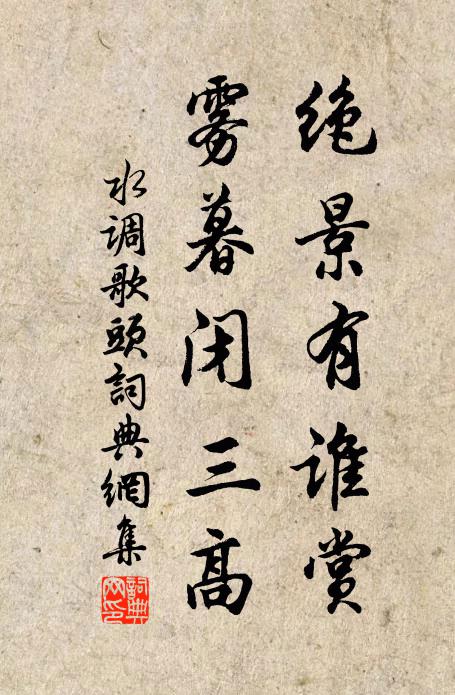 绝景有谁赏
雾暮闭三高
水调歌頭詞典網集
詞典網印